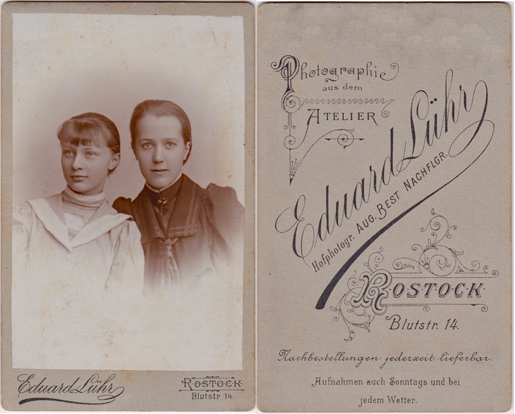 Eduard Lühr
ROSTOCK
Blutstr. 14.
Photographie
aus dem
ATELIER
Eduard Lühr
Hofphotogr. AUG. BEST NACHFLGR.
ROSTOCK
Blutstr. 14.
Nachbestellungen jederzeit lieferbar.
Aufnahmen auch Sonntags und bei
jedem Wetter.